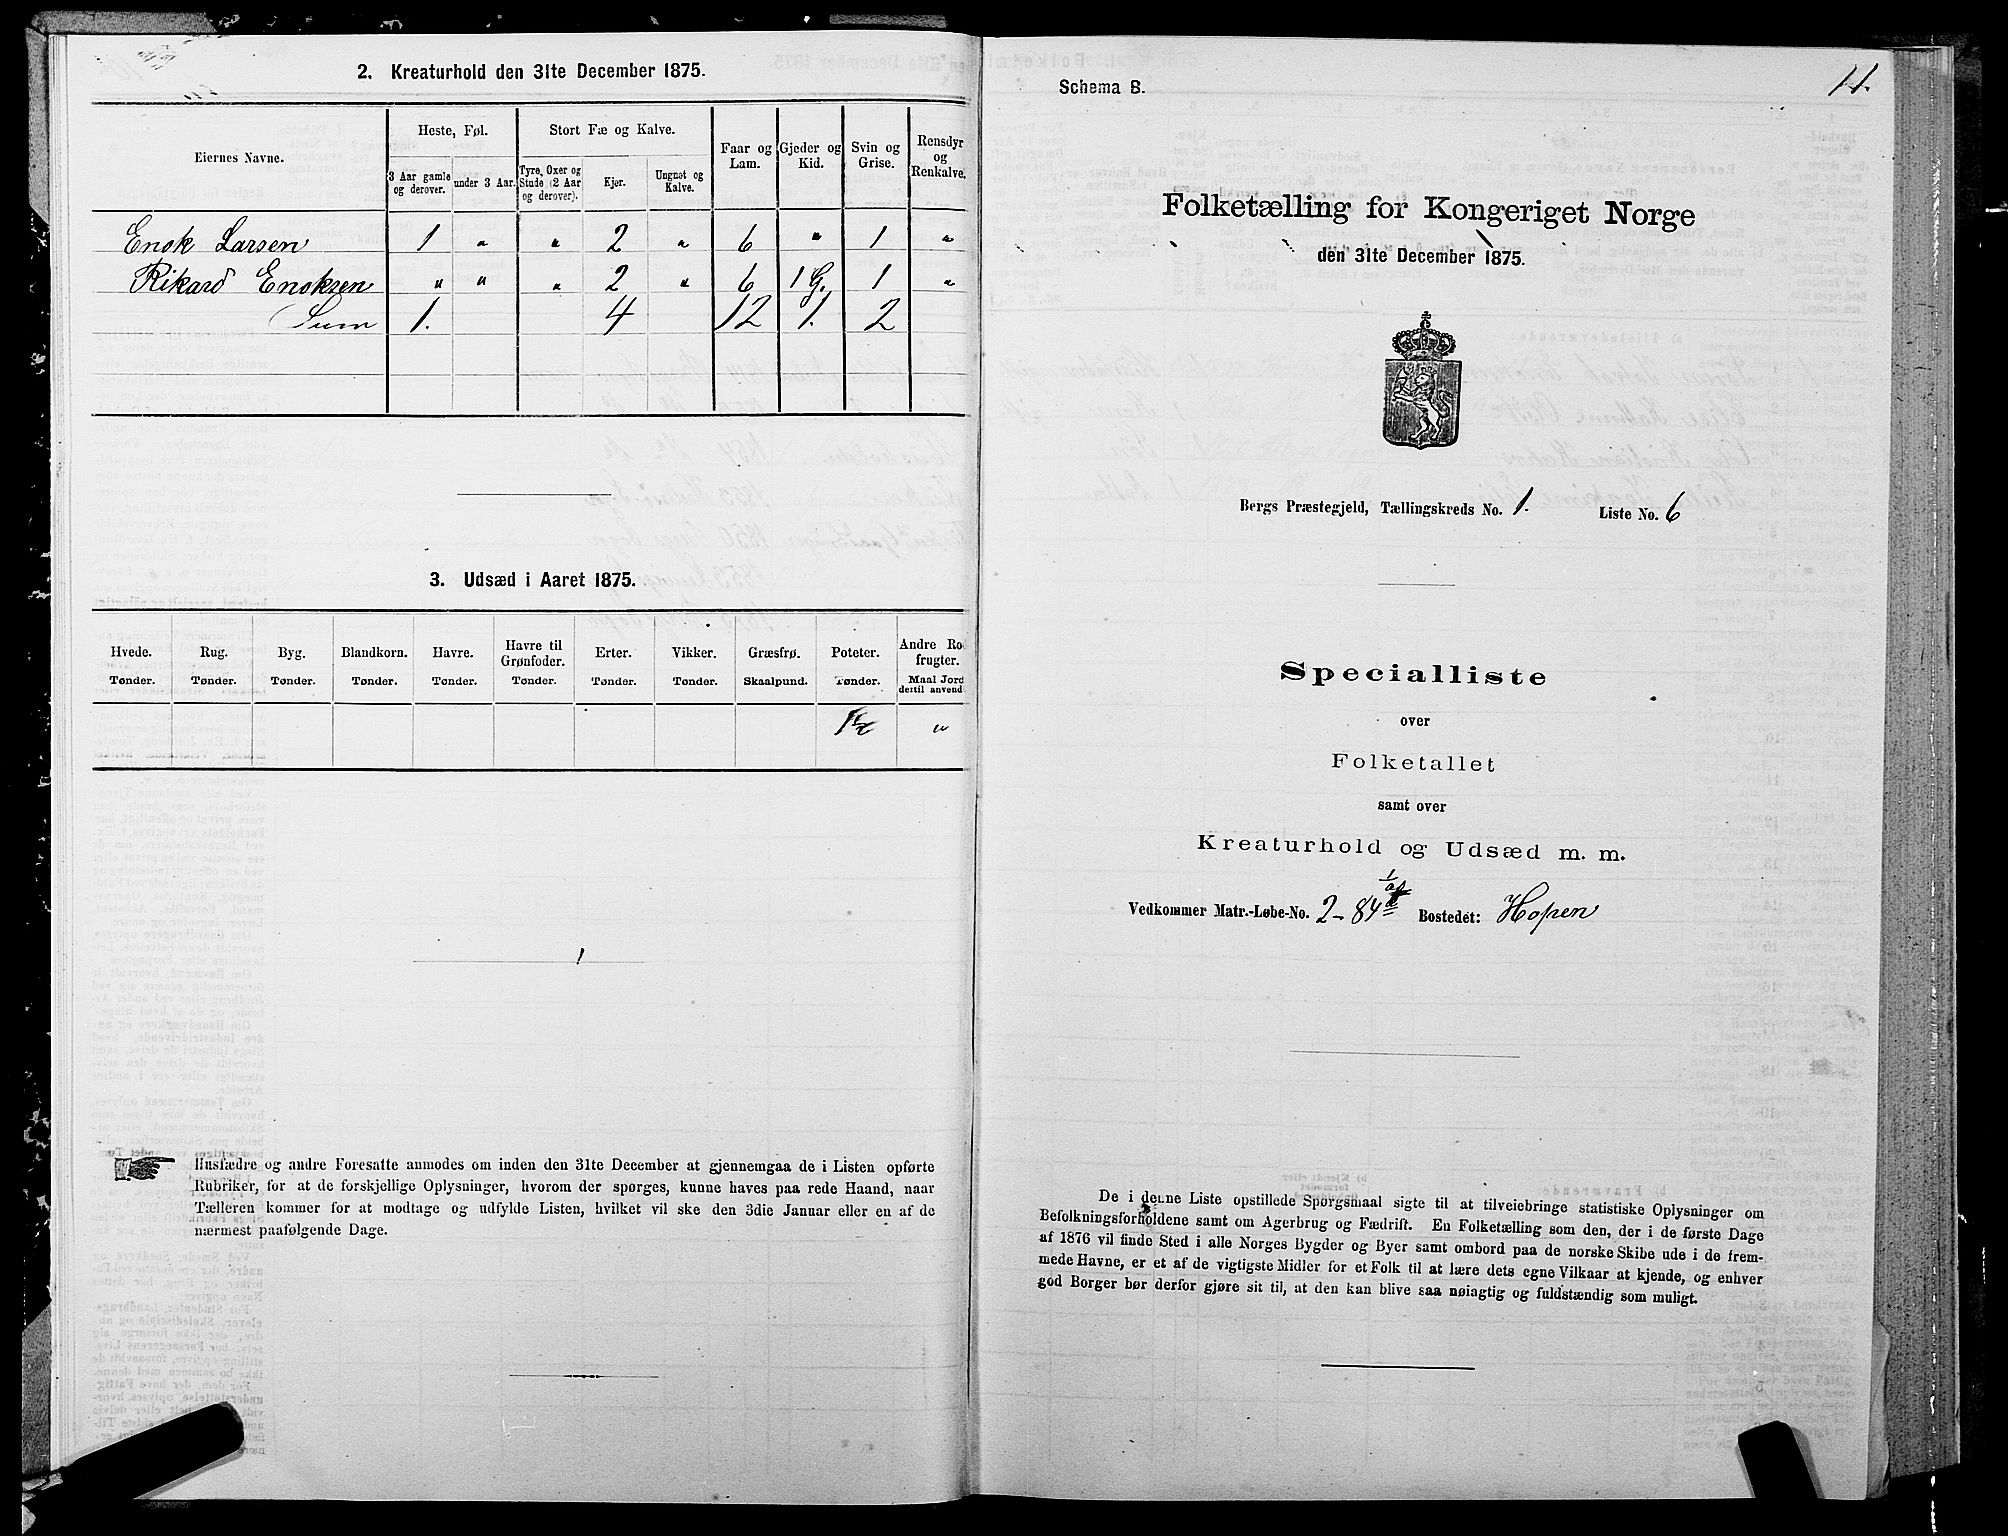 2. Kreaturhold den 31te December 1875.
Eiernes Navne.
Heste, Føl.
Stort Fæ og Kalve.
Faar og Lam.
Gjeder og Kid.
Svin og Grise.
Rensdyr og Renkalve.
3 Aar gamle og derover.
under 3 Aar.
Tyre, Oxer og Stude (2 Aar og derover).
Kjer.
Ungnøt og Kalve.
Enok Larsen 1 " " 2 " 6 " 1 "
Rikard Enoksen " " " 2 " 6 1 G. 1 "
Sum 1. 4 12 1. 2
3. Udsæd i Aaret 1875.
Hvede. Rug. Byg. Blandkorn. Havre. Havre til Grønfoder. Erter. Vikker. Græsfrø. Poteter. Andre Ro frugter.
Tønder. Tønder. Tønder. Tønder. Tønder. Tønder. Tønder. Tønder. Skaalpund. Tønder. Maal Jord dertil anvend
1½ "
Husfædre og andre Foresatte anmodes om inden den 31te December at gjennemgaa de i Listen opførte
Rubriker, for at de forskjellige Oplysninger, hvorom der spørges, kunne haves paa rede Haand, naar
Tælleren kommer for at modtage og udfylde Listen, hvilket vil ske den 3die Januar eller en af de
nærmest paafølgende Dage.
11.
Schema B.
Folketælling for Kongeriget Norge
den 31te December 1875.
Bergs Præstegjeld, Tællingskreds No. 1. Liste No. 6
Specialliste
over
Folketallet
samt over
Kreaturhold og Udsæd m. m.
Vedkommer Matr.-Løbe-No. 2-84 Bostedet: Hopen
De i denne Liste opstillede Spørgsmaal sigte til at tilveiebringe statistiske Oplysninger om
Befolkningsforholdene samt om Agerbrug og Fædrift. En Folketælling som den, der i de første Dage
af 1876 vil finde Sted i alle Norges Bygder og Byer samt ombord paa de norske Skibe ude i de frem-
mede Havne, er et af de vigtigste Midler for et Folk til at lære dets egne Vilkaar at kjende, og enhver
god Borger bør derfor gjøre sit til, at den kan blive saa nøiagtig og fuldstændig som muligt.